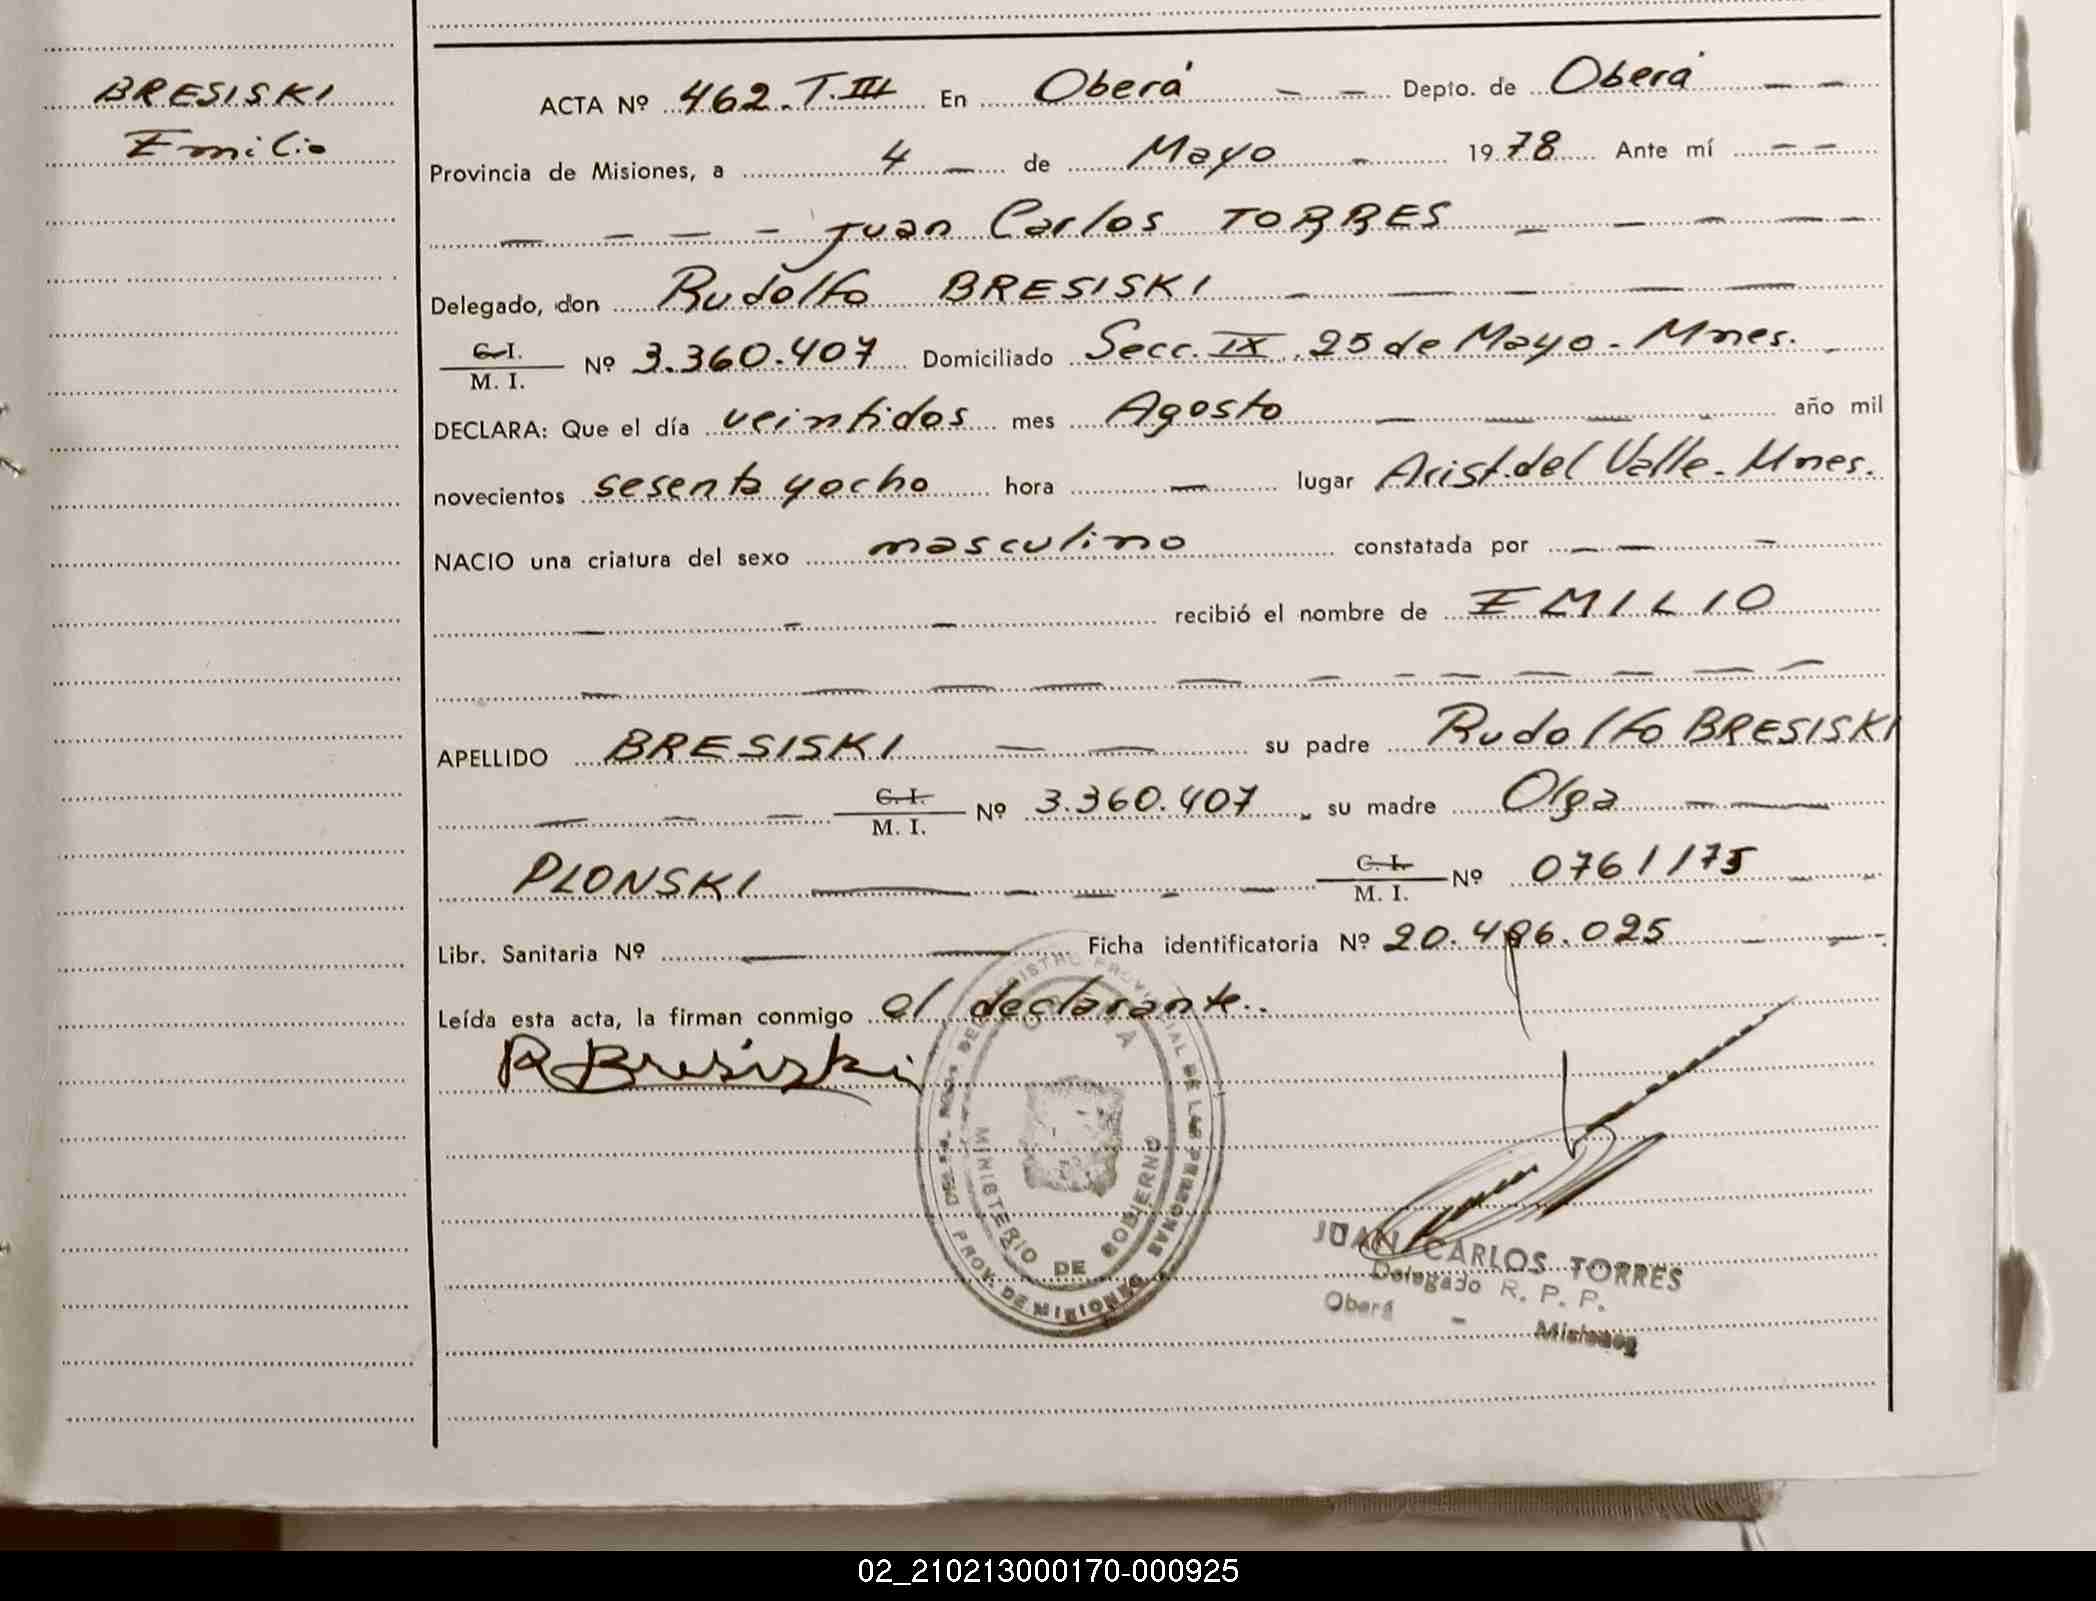 BRESISKI
Emilio
ACTA Nº 462. T. III En Oberá Depto. de Oberá
Provincia de Misiones, a 4 de Mayo 1978 Ante mí
Juan Carlos TORRES
Delegado, don Rudolfo BRESISKI
C. I.
M. I. Nº 3.360.407 Domiciliado Secc. IX. 25 de Mayo - Mnes.
DECLARA: Que el día veintidos mes Agosto año mil
novecientos sesenta y ocho hora — lugar Arist. del Valle - Mnes.
NACIO una criatura del sexo masculino constatada por
recibió el nombre de EMILIO
APELLIDO BRESISKI su padre Rudolfo BRESISKI
C. I.
M. I. Nº 3.360.407 su madre Olga
PLONSKI C. I.
M. I. Nº 0761175
Libr. Sanitaria Nº — Ficha identificatoria Nº 20.496.025
Leída esta acta, la firman conmigo el declarante.
R Bresiski
MINISTERIO DE GOBIERNO
PROV. DE MISIONES
REGISTRO PROVINCIAL DE LAS PERSONAS
JUAN CARLOS TORRES
Delegado R. P. P.
Oberá - Misiones
02_210213000170-000925